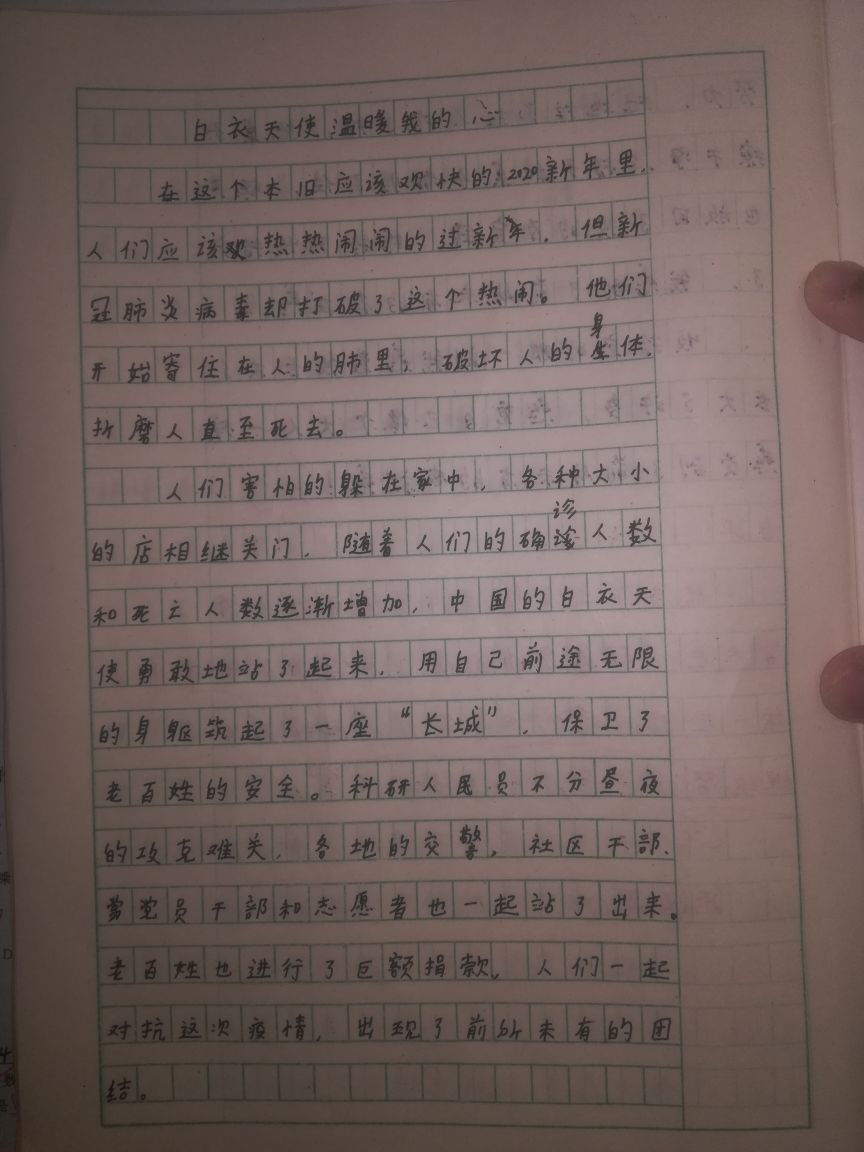 白衣天使温暖我的心
在这个本旧应该欢快的2020新年里，
人们应该欢热热闹闹的过新年，但新
冠肺炎病毒却打破了这个热闹。他们
开始寄住在人的肺里，破坏人的身体，
折磨人直至死去。
人们害怕的躲在家中，各种大小
的店相继关门，随着人们的确诊人数
和死亡人数逐渐增加，中国的白衣天
使勇敢地站了起来，用自己前途无限
的身躯筑起了一座“长城”，保卫了
老百姓的安全。科研人民员不分昼夜
的攻克难关，各地的交警，社区干部、
党员干部和志愿者也一起站了出来。
老百姓也进行了巨额捐款，人们一起
对抗这次疫情，出现了前所未有的团
结。